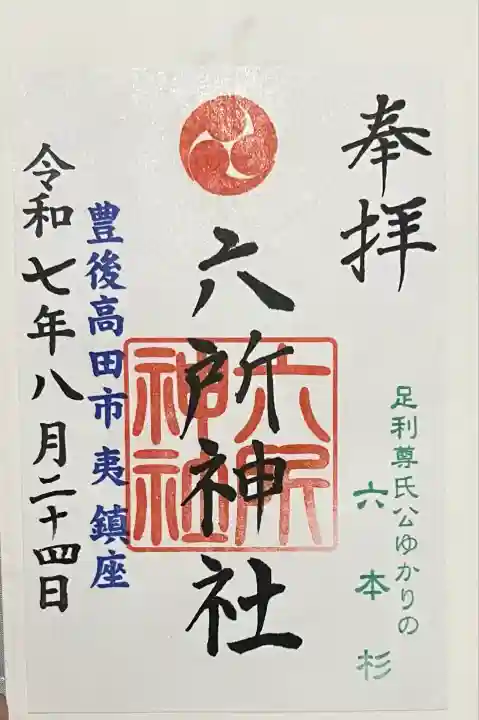 奉拝
足利尊氏公ゆかりの
六本杉
六所神社
六所
神社
豊後高田市 夷 鎮座
令和七年八月二十四日